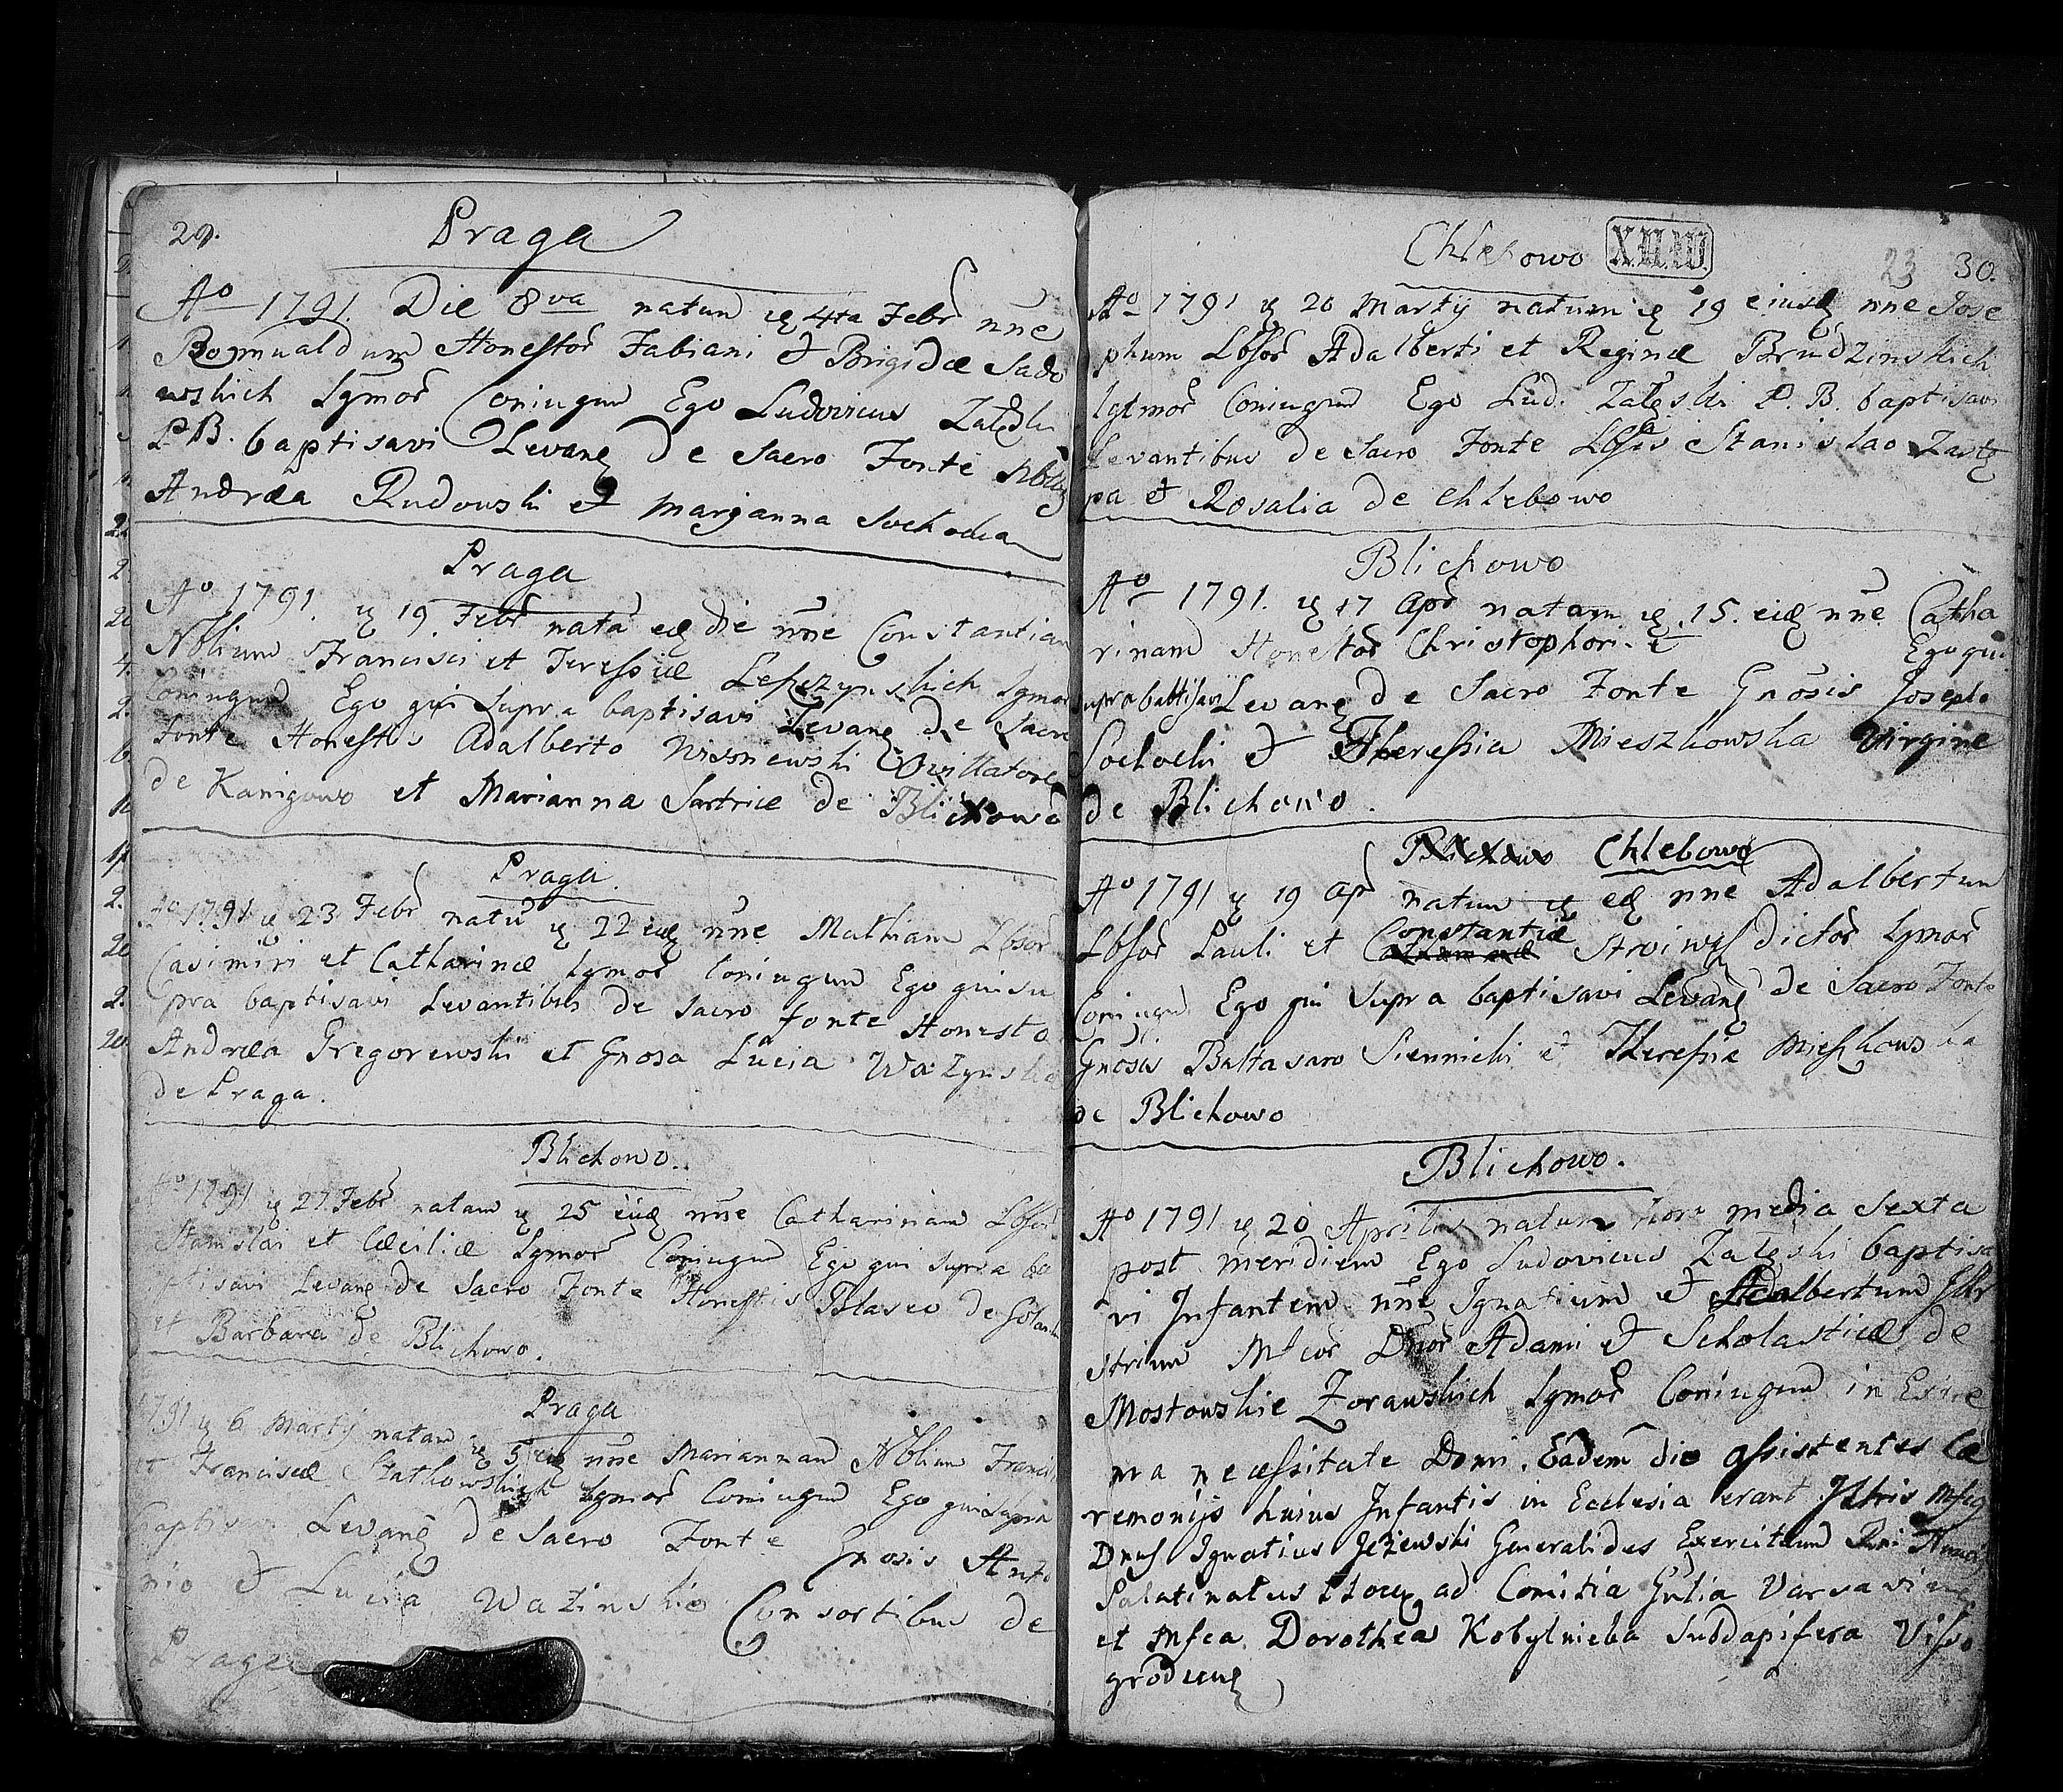 29.
Praga
Ao 1791. Die 8va natum 4ta Febr nne
Romualdum Honestor Fabiani et Brigidæ Sado
wskich Lgmor Coniugum Ego Ludovicus Zaleski
P.B. baptisavi Levang de Sacro Fonte Nblbg
Andræa Rudowski et Marjanna Sochocka
Praga
Ao 1791. 19 Febr nata eag die nne Constantiam
Nblium Francisci et Teressiæ Lepszynskich Lgmor
Coniugum Ego qui Supra baptisavi Levang de Sacro
Fonte Honestis Adalberto Wisniewski
de Kanigowo et Marianna Sartrice de Blichowo
Praga.
Ao 1791 23 Febr natu 22 eiug nne Mathiam Lbsor
Casimiri et Catharinæ Lgmor Coniugum Ego qui su
pra baptisavi Levantibus de Sacro fonte Honesto
Andræa Gregorewski et Gnosa Lucia Wazynska
de Praga.
Blichowo.
Ao 1791 27 Febr natam 25 eiug nne Catharinam Lbsor
Stanislai et Cæciliæ Lgmor Coniugum Ego qui Supra ba
ptisavi Levang de Sacro Fonte Honestis Blaseo de
et Barbara de Blichowo.
Praga
1791 6 Martij natam 5 eiug nne Mariannam Nblium Franci
et Franciscæ Lgmor Coniugum Ego qui Supra
baptisavi Levang de Sacro Fonte Gnosis Anto
nio et Lucia Wazinskie Consortibus de
Praga
Chlebowo X.II.W. 23 30.
Ao 1791 20 Martij natum 19 eiusg nne Jose
phum Lbsor Adalberti et Reginæ Brudzinskich
lgtmor Coniugum Ego Lud. Zaleski P.B. baptisavi
Levantibus de Sacro Fonte Lbsis Stanislao
pa et Rosalia de Chlebowo
Blichowo
Ao 1791. 17 Apr natam 15. eiug nne Catha
rinam Honestor Christophori et Ego qui
supra baptisavi Levang de Sacro Fonte Gnosis Josepho
Sochocki et Theressia Mieszkowska Virgine
de Blichowo.
Blichowo Chlebowo
Ao 1791 19 Apr natum eag nne Adalbertum
Lbsor Pauli et Constantiæ dictor Lgmor
Coniugum Ego qui Supra baptisavi Levang de Sacro Fonte
Gnosis Baltasaro Siennicki et Theresia Mieszkowska
de Blichowo
Blichowo.
Ao 1791 20 Aprilis natum hora media Sexta
post meridiem Ego Ludovicus Zaleski baptisa
vi Infantem nne Ignatium et Adalbertum Illu
strium Mfcor Dnor Adami et Scholasticæ de
Mostowskie Zorawskich Lgmor Coniugum in Extre
ma necessitate Domi. Eadem die assistentes Cæ
remonijs huius Infantis in Ecclesia erant Illtris Mfcg
Dnus Ignatius Jezewski Generalides Exercituum Rni
Palatinatus ad Comitia Gnlia Varsavien
et Mfca Dorothea Kobylnicka Subdapifera Visso
grodieng